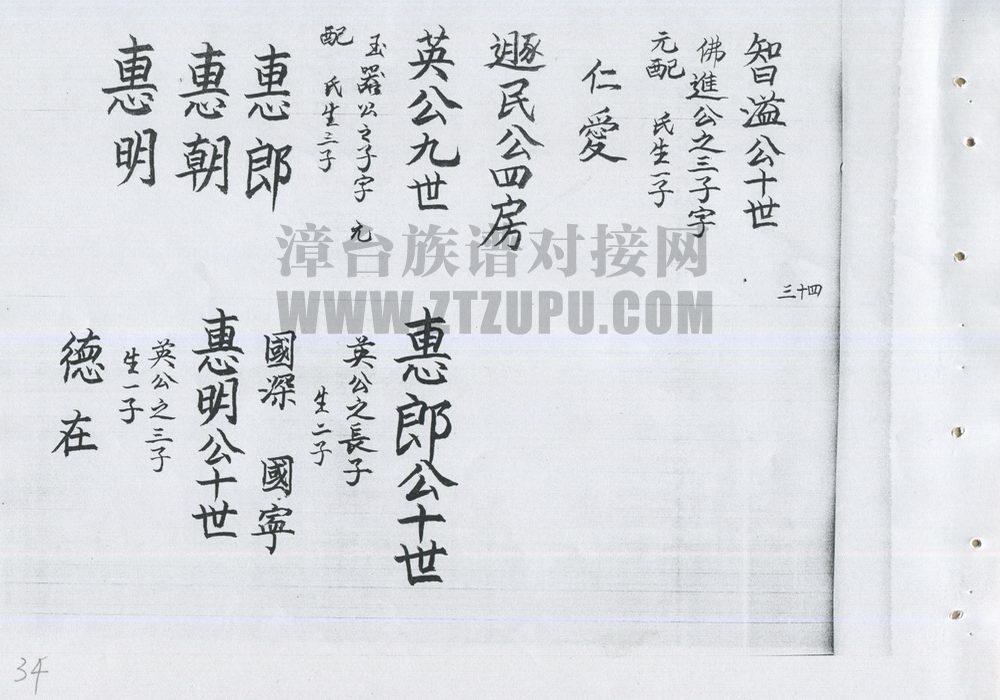 智溢公十世
佛進公之三子字
元配 氏生一子
仁愛
遯民公四房
英公九世
玉器公之子字 元
配 氏生三子
惠郎
惠朝
惠明
三十四
惠郎公十世
英公之長子
生二子
國深 國寧
惠明公十世
英公之三子
生一子
德在
漳台族谱对接网
WWW.ZTZUPU.COM
34